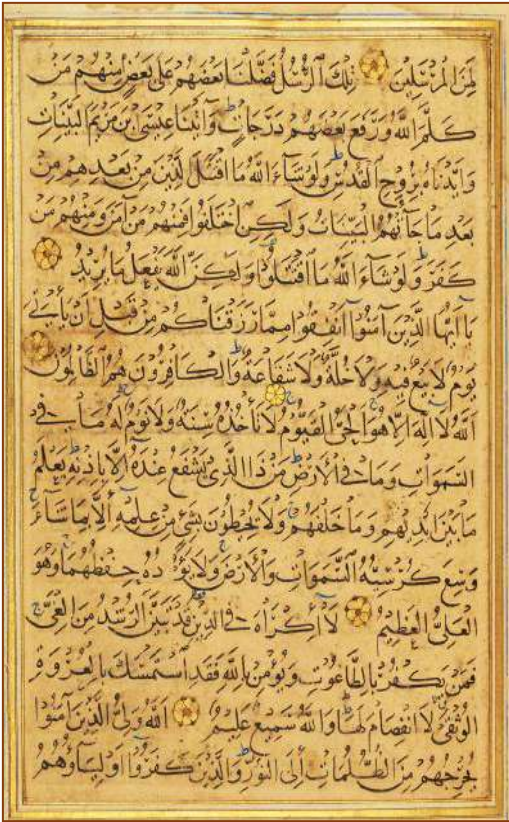 لَمِنَ الْمُرْسَلِينَ تِلْكَ الرُّسُلُ فَضَّلْنَا بَعْضَهُمْ عَلَى بَعْضٍ مِنْهُمْ مَنْ
كَلَّمَ اللَّهُ وَرَفَعَ بَعْضَهُمْ دَرَجَاتٍ وَآتَيْنَا عِيسَى ابْنَ مَرْيَمَ الْبَيِّنَاتِ
وَأَيَّدْنَاهُ بِرُوحِ الْقُدُسِ وَلَوْ شَاءَ اللَّهُ مَا اقْتَتَلَ الَّذِينَ مِنْ بَعْدِهِمْ مِنْ
بَعْدِ مَا جَاءَتْهُمُ الْبَيِّنَاتُ وَلَكِنِ اخْتَلَفُوا فَمِنْهُمْ مَنْ آمَنَ وَمِنْهُمْ مَنْ
كَفَرَ وَلَوْ شَاءَ اللَّهُ مَا اقْتَتَلُوا وَلَكِنَّ اللَّهَ يَفْعَلُ مَا يُرِيدُ
يَا أَيُّهَا الَّذِينَ آمَنُوا أَنْفِقُوا مِمَّا رَزَقْنَاكُمْ مِنْ قَبْلِ أَنْ يَأْتِيَ
يَوْمٌ لَا بَيْعٌ فِيهِ وَلَا خُلَّةٌ وَلَا شَفَاعَةٌ وَالْكَافِرُونَ هُمُ الظَّالِمُونَ
اللَّهُ لَا إِلَهَ إِلَّا هُوَ الْحَيُّ الْقَيُّومُ لَا تَأْخُذُهُ سِنَةٌ وَلَا نَوْمٌ لَهُ مَا فِي
السَّمَوَاتِ وَمَا فِي الْأَرْضِ مَنْ ذَا الَّذِي يَشْفَعُ عِنْدَهُ إِلَّا بِإِذْنِهِ يَعْلَمُ
مَا بَيْنَ أَيْدِيهِمْ وَمَا خَلْفَهُمْ وَلَا يُحِيطُونَ بِشَيْءٍ مِنْ عِلْمِهِ إِلَّا بِمَا شَاءَ
وَسِعَ كُرْسِيُّهُ السَّمَوَاتِ وَالْأَرْضَ وَلَا يَؤُدُهُ حِفْظُهُمَا وَهُوَ
الْعَلِيُّ الْعَظِيمُ لَا إِكْرَاهَ فِي الدِّينِ قَدْ تَبَيَّنَ الرُّشْدُ مِنَ الْغَيِّ
فَمَنْ يَكْفُرْ بِالطَّاغُوتِ وَيُؤْمِنْ بِاللَّهِ فَقَدِ اسْتَمْسَكَ بِالْعُرْوَةِ
الْوُثْقَى لَا انْفِصَامَ لَهَا وَاللَّهُ سَمِيعٌ عَلِيمٌ اللَّهُ وَلِيُّ الَّذِينَ آمَنُوا
يُخْرِجُهُمْ مِنَ الظُّلُمَاتِ إِلَى النُّورِ وَالَّذِينَ كَفَرُوا أَوْلِيَاؤُهُمُ